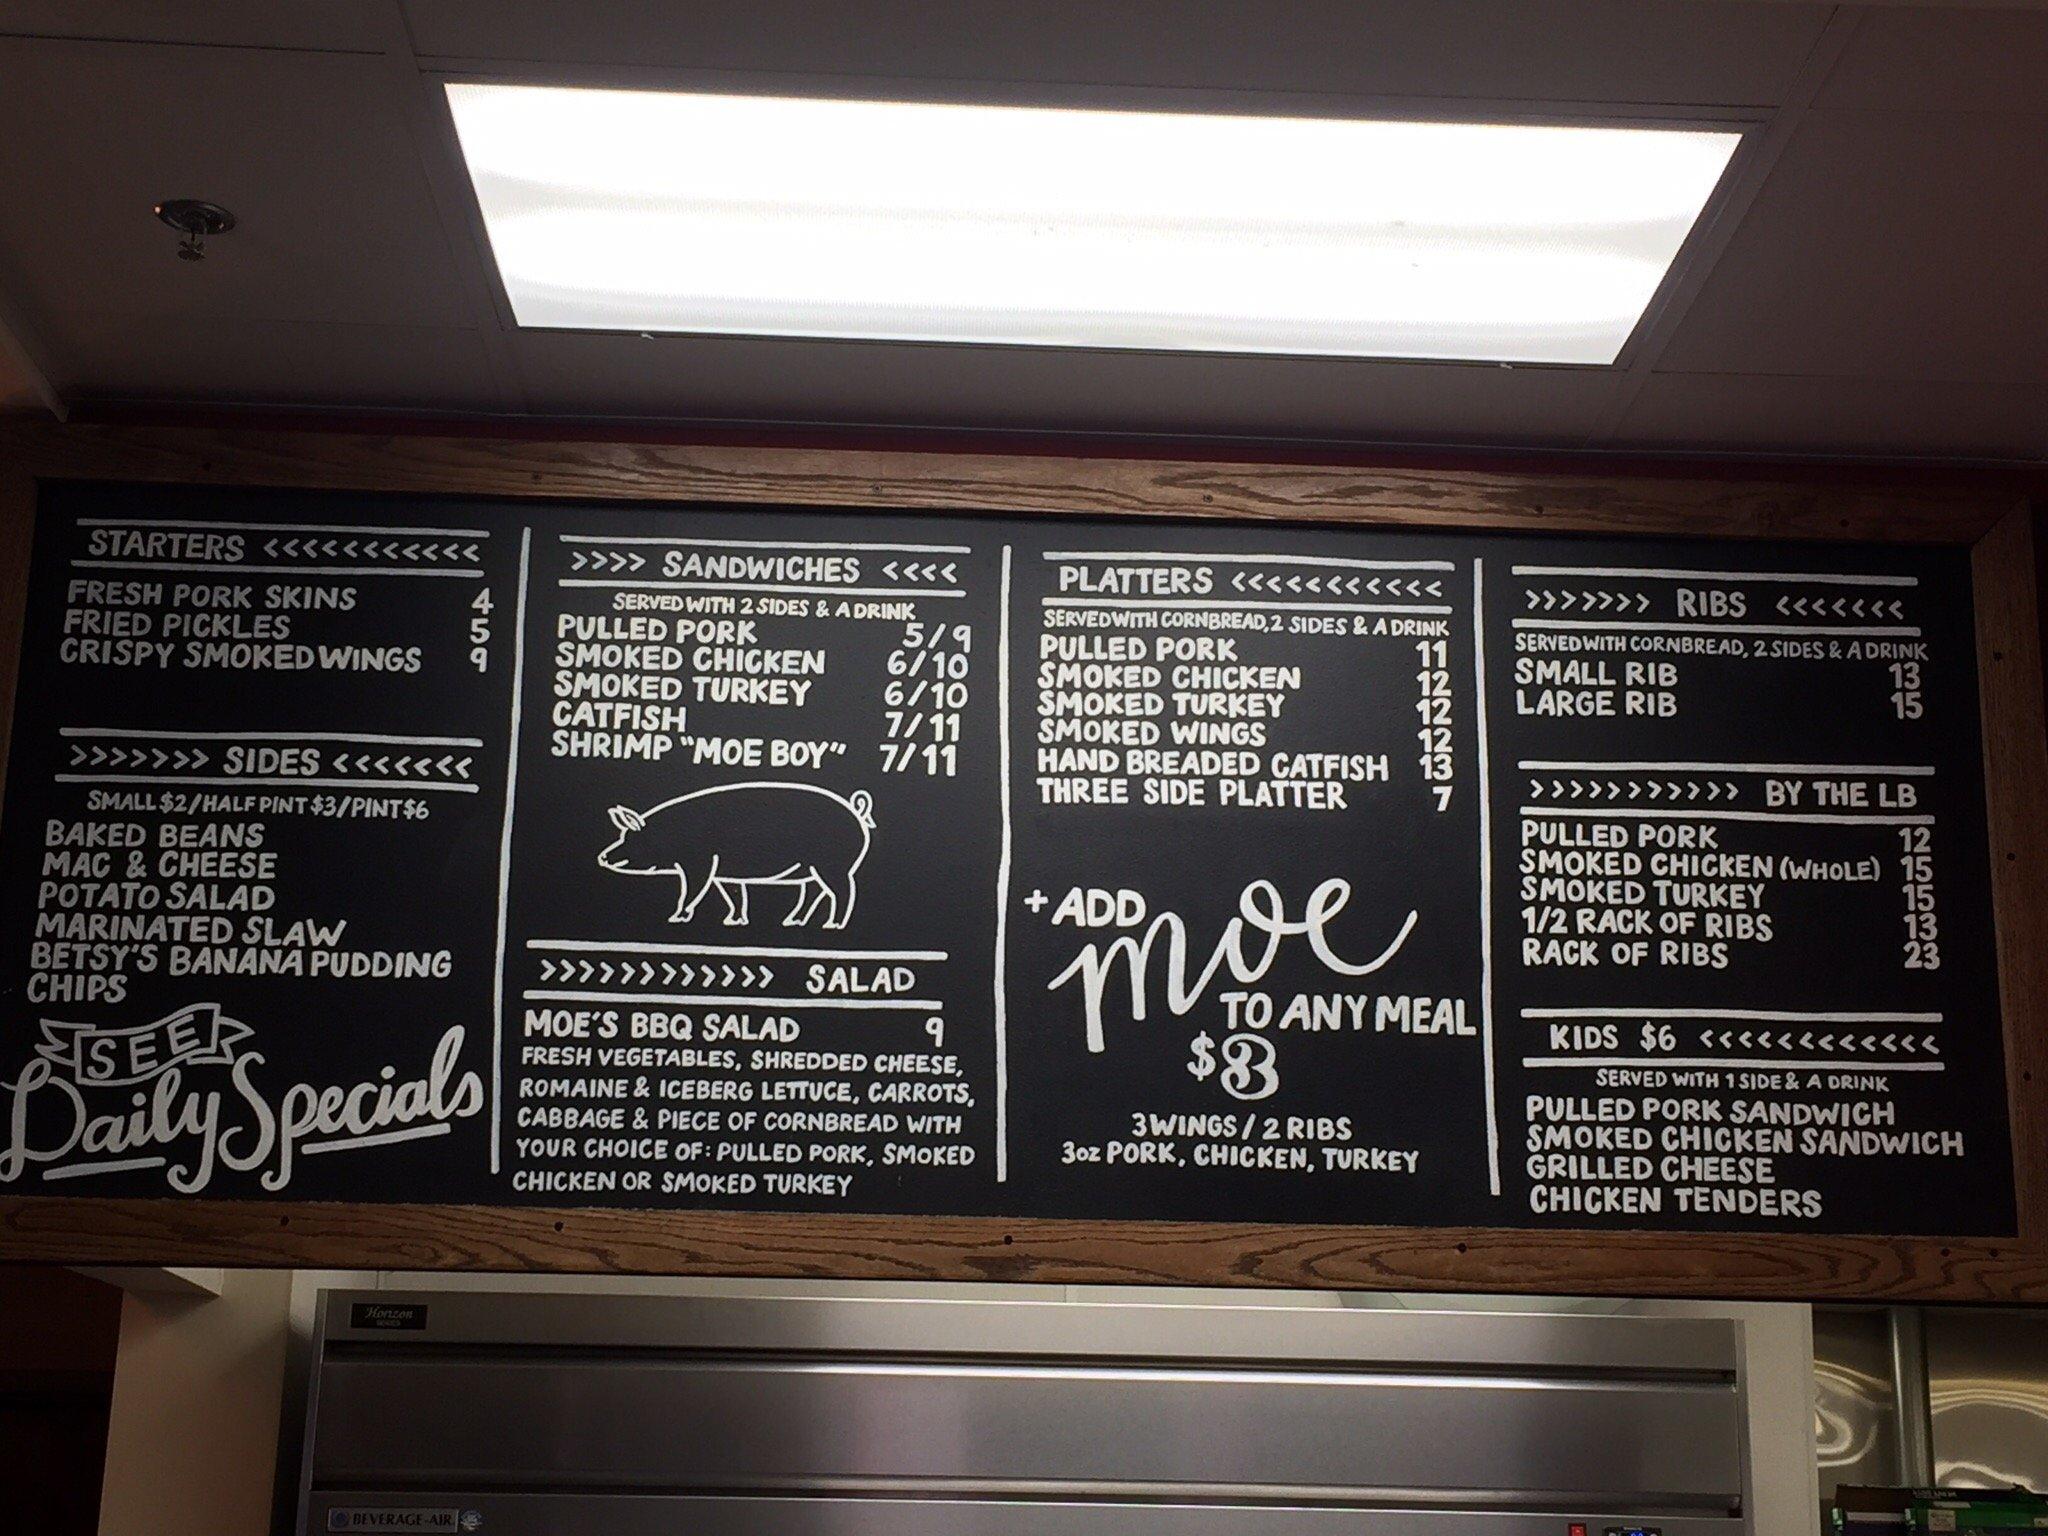 STARTERS <<<<<<<<<<<
FRESH PORK SKINS 4
FRIED PICKLES 5
CRISPY SMOKED WINGS 9
>>>>>>> SIDES <<<<<<<
SMALL $2/HALF PINT $3/PINT $6
BAKED BEANS
MAC & CHEESE
POTATO SALAD
MARINATED SLAW
BETSY'S BANANA PUDDING
CHIPS
SEE
Daily Specials
>>>> SANDWICHES <<<<
SERVED WITH 2 SIDES & A DRINK
PULLED PORK 5/9
SMOKED CHICKEN 6/10
SMOKED TURKEY 6/10
CATFISH 7/11
SHRIMP "MOE BOY" 7/11
>>>>>>>>>>>> SALAD
MOE'S BBQ SALAD 9
FRESH VEGETABLES, SHREDDED CHEESE,
ROMAINE & ICEBERG LETTUCE, CARROTS,
CABBAGE & PIECE OF CORNBREAD WITH
YOUR CHOICE OF: PULLED PORK, SMOKED
CHICKEN OR SMOKED TURKEY
PLATTERS <<<<<<<<<<<
SERVED WITH CORNBREAD, 2 SIDES & A DRINK
PULLED PORK 11
SMOKED CHICKEN 12
SMOKED TURKEY 12
SMOKED WINGS 12
HAND BREADED CATFISH 13
THREE SIDE PLATTER 7
+ ADD
moe
TO ANY MEAL
$3
3 WINGS / 2 RIBS
3oz PORK, CHICKEN, TURKEY
>>>>>>> RIBS <<<<<<<
SERVED WITH CORNBREAD, 2 SIDES & A DRINK
SMALL RIB 13
LARGE RIB 15
>>>>>>>>>>> BY THE LB
PULLED PORK 12
SMOKED CHICKEN (WHOLE) 15
SMOKED TURKEY 15
1/2 RACK OF RIBS 13
RACK OF RIBS 23
KIDS $6 <<<<<<<<<<<<
SERVED WITH 1 SIDE & A DRINK
PULLED PORK SANDWICH
SMOKED CHICKEN SANDWICH
GRILLED CHEESE
CHICKEN TENDERS
Horizon
SERIES
BEVERAGE-AIR